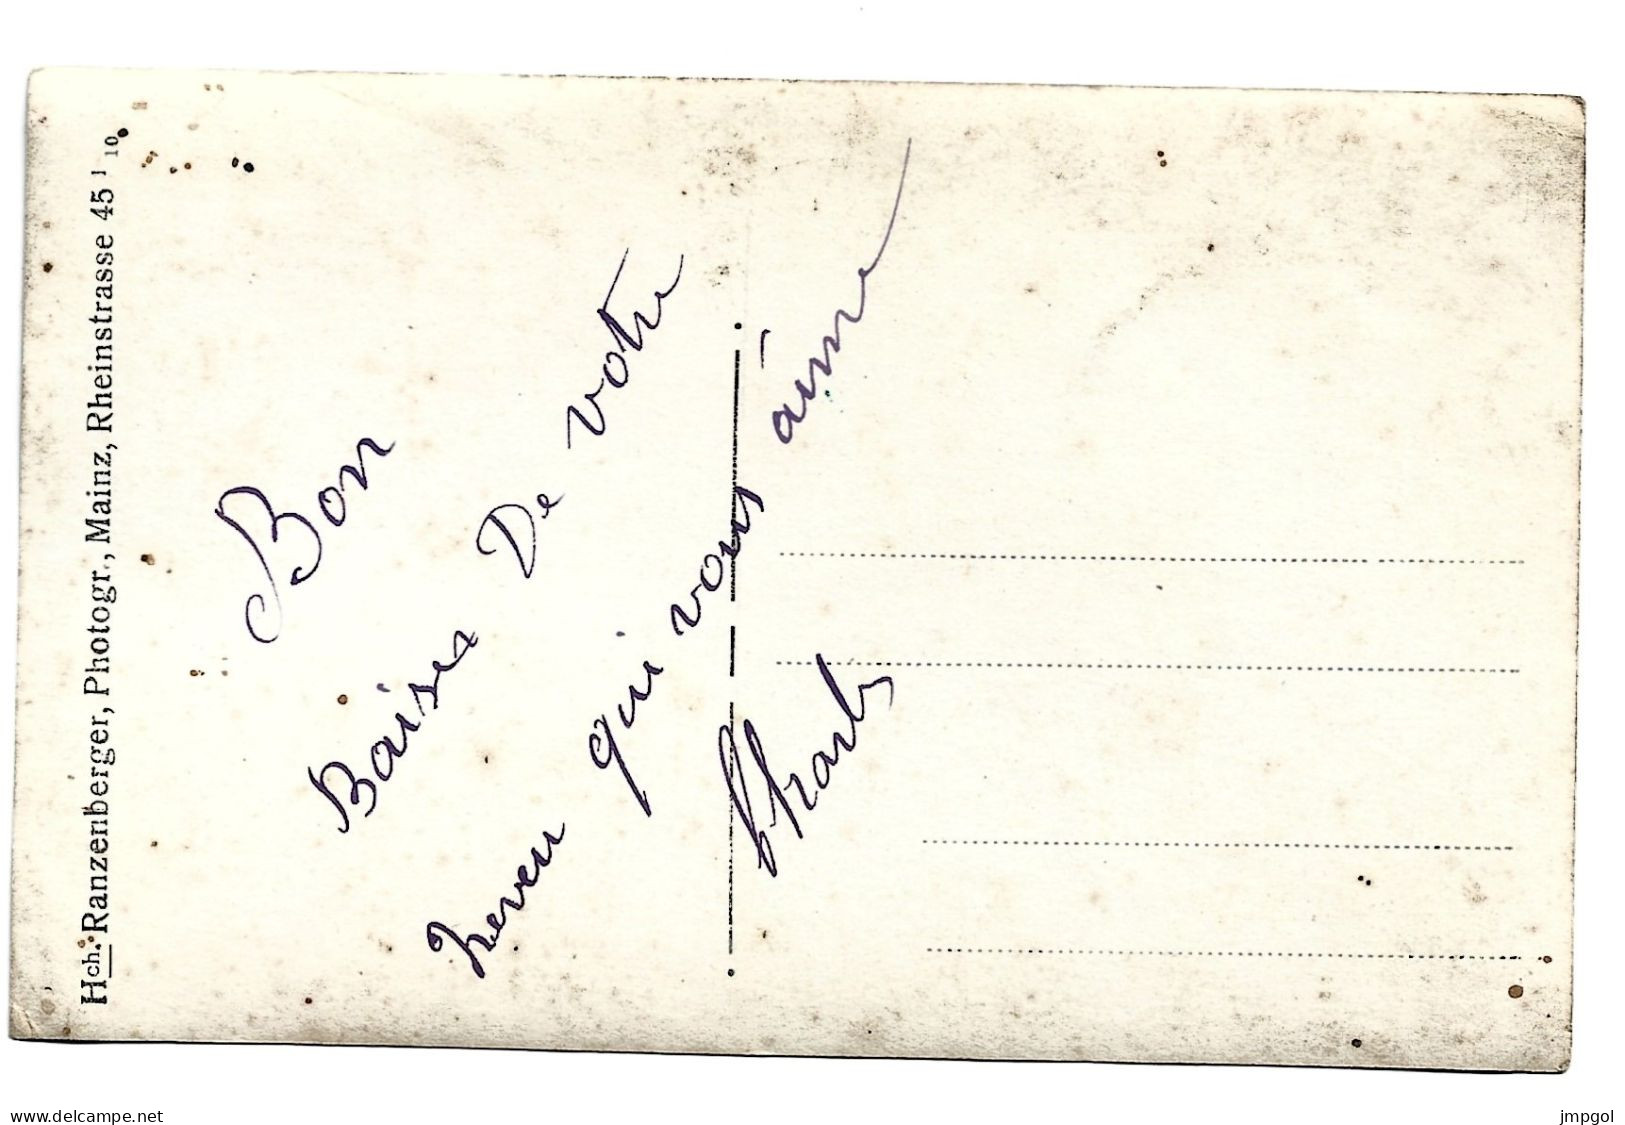 Hch. Ranzenberger, Photogr., Mainz, Rheinstrasse 45 1/10
Bon
Baiser De votre
neveu qui vous aime
Charles
www.delcampe.net
jmpgol